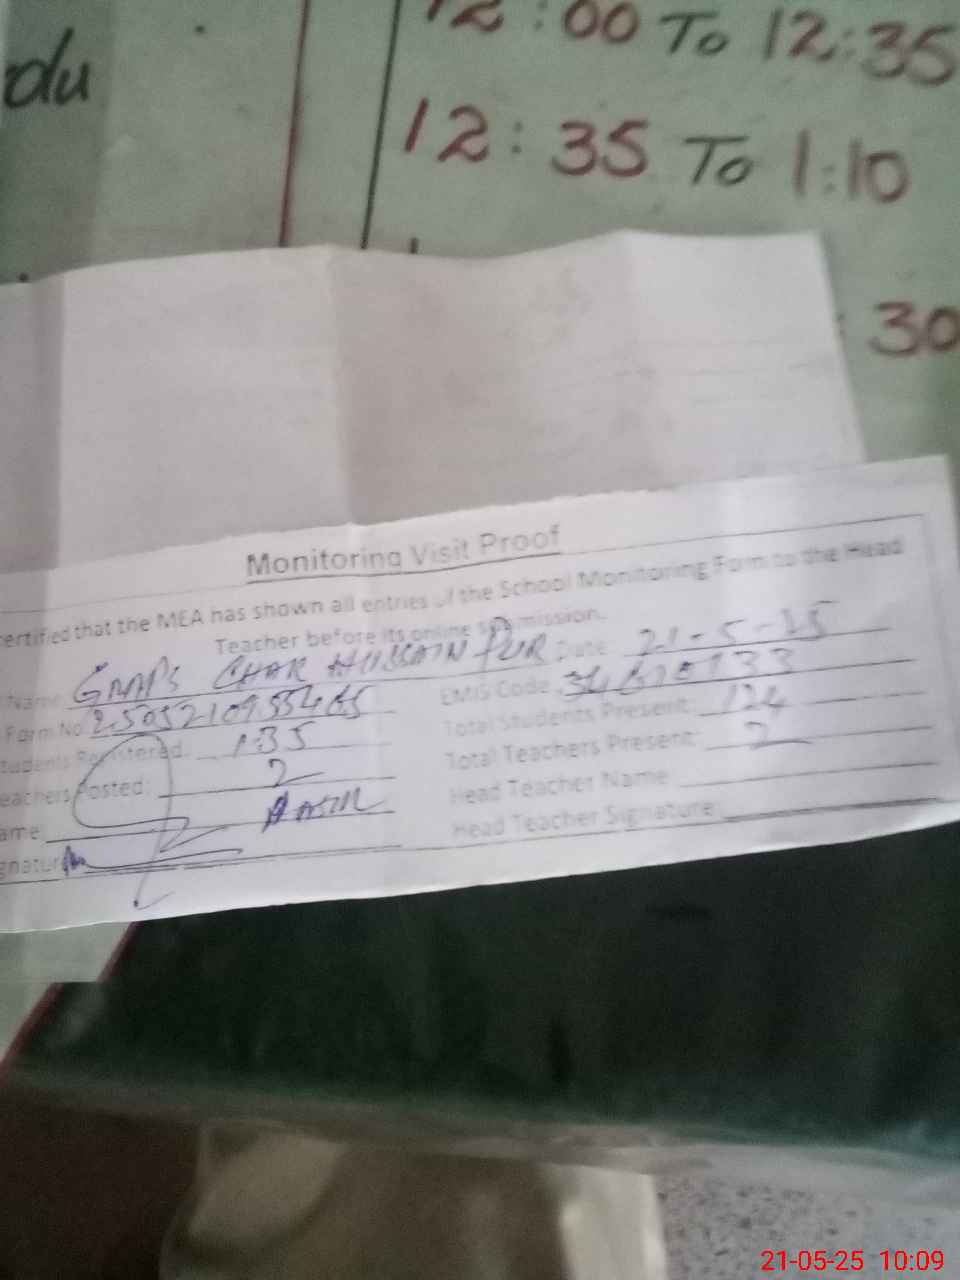 du
12:00 To 12:35
12:35 To 1:10
: 30
Monitoring Visit Proof
ertified that the MEA has shown all entries of the School Monitoring Form to the Head
Teacher before its online submission.
Name CHAR HUSSAIN PUR Date: 21-5-25
Form No EMIS Code
tudents Registered: 135 Total Students Present: 124
eachers Posted: 2 Total Teachers Present: 2
ame Head Teacher Name:
gnature Head Teacher Signature:
21-05-25 10:09